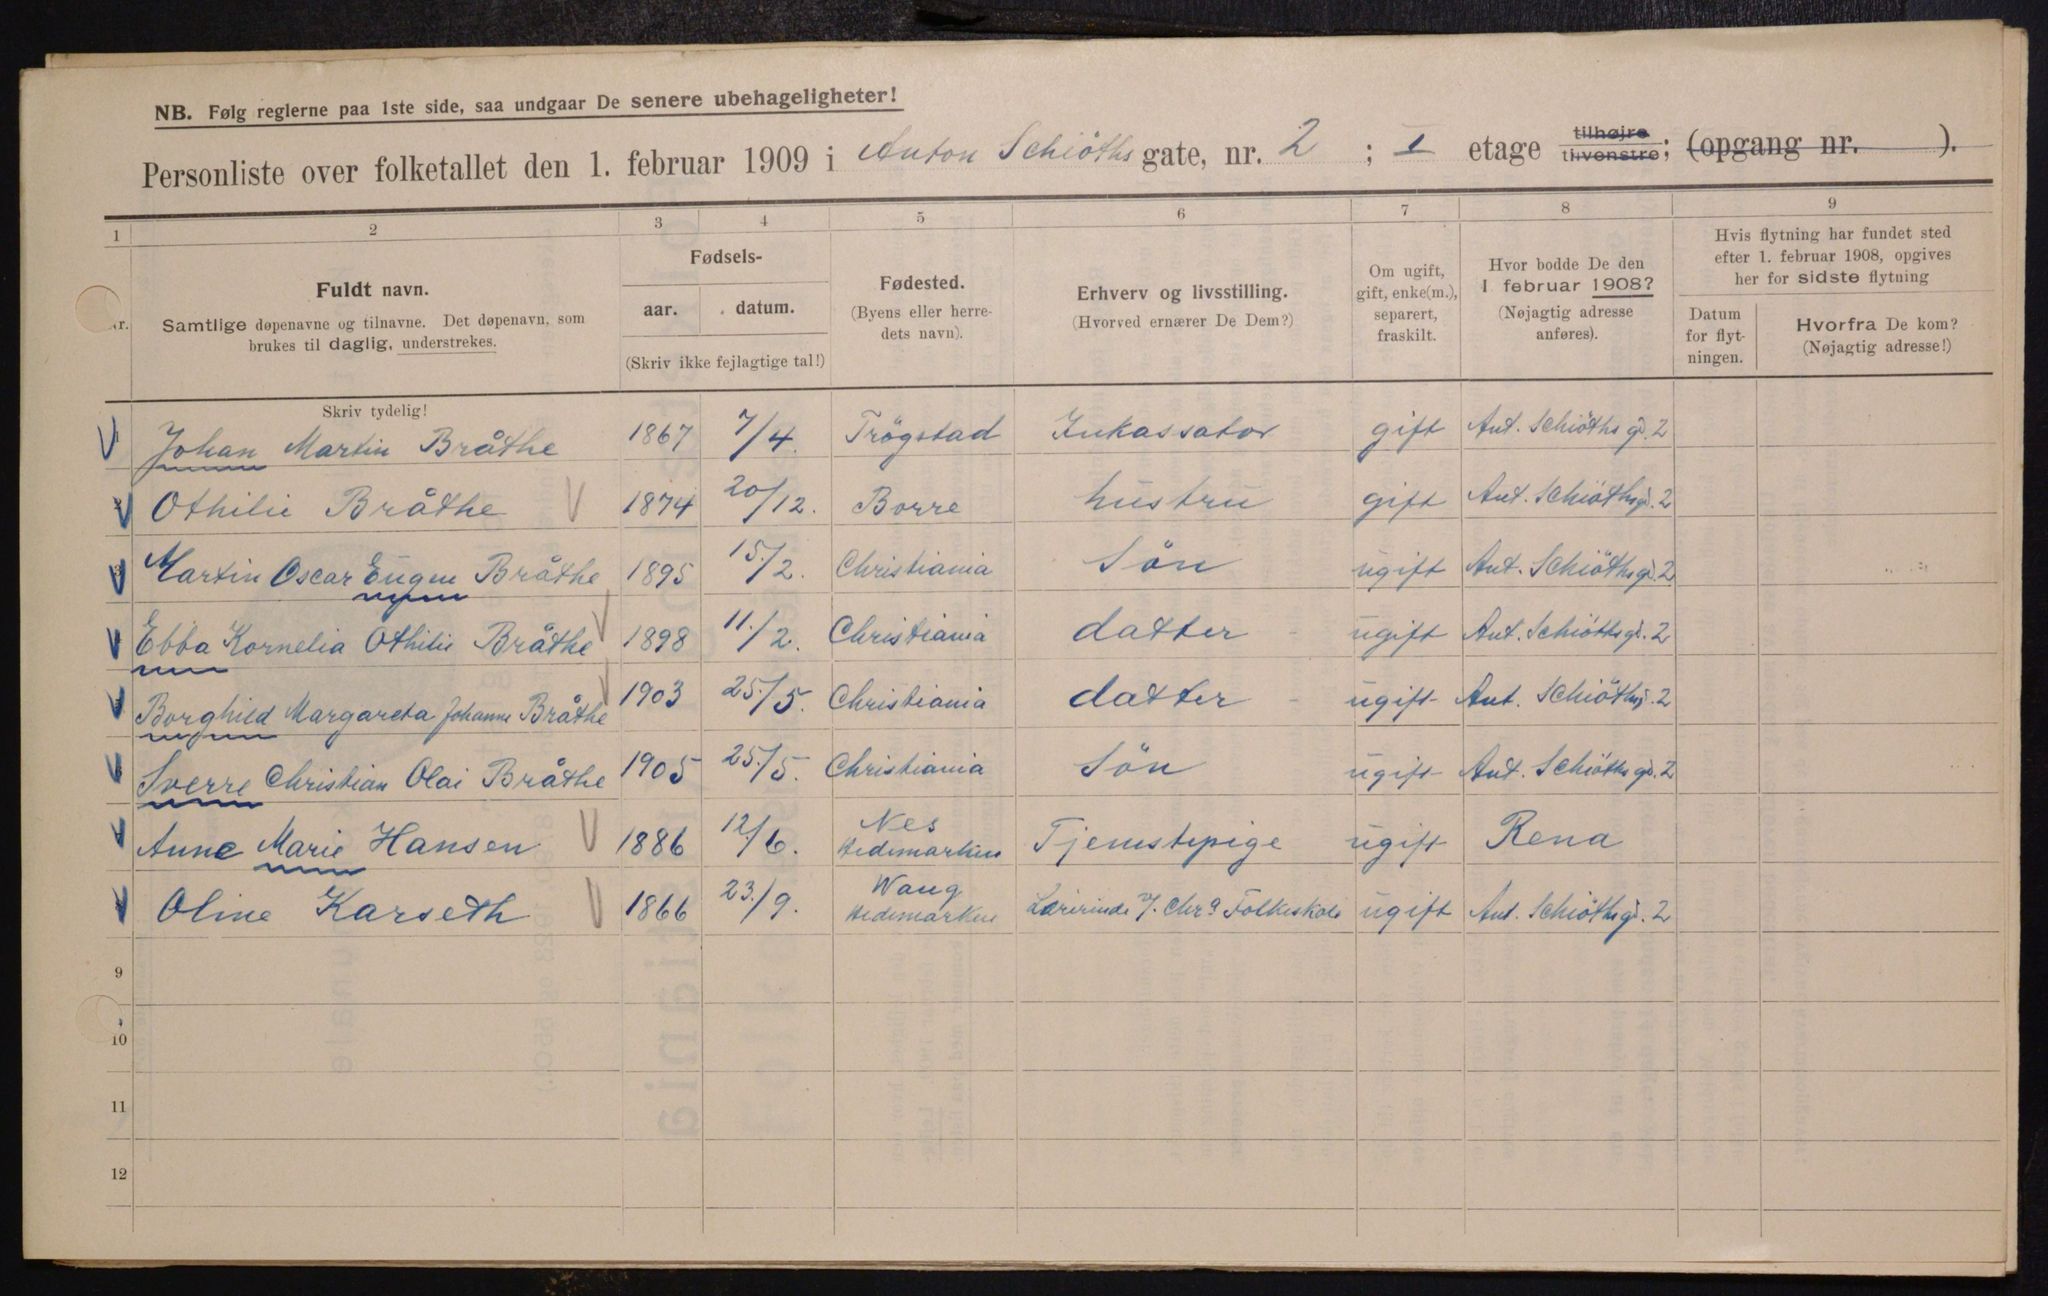 NB. Følg reglerne paa 1ste side, saa undgaar De senere ubehageligheter!
Personliste over folketallet den 1. februar 1909 i Anton Schiöths gate, nr. 2 ; I etage tilhøjre tilvenstre; (opgang nr. ).
1 2 3 4 5 6 7 8 9
Nr.
Fuldt navn.
Samtlige døpenavne og tilnavne. Det døpenavn, som
brukes til daglig, understrekes.
Fødsels-
aar. datum.
(Skriv ikke fejlagtige tal!)
Fødested.
(Byens eller herre-
dets navn).
Erhverv og livsstilling.
(Hvorved ernærer De Dem?)
Om ugift,
gift, enke(m.),
separert,
fraskilt.
Hvor bodde De den
1 februar 1908?
(Nøjagtig adresse
anføres).
Hvis flytning har fundet sted
efter 1. februar 1908, opgives
her for sidste flytning
Datum
for flyt-
ningen.
Hvorfra De kom?
(Nøjagtig adresse!)
Skriv tydelig!
Johan Martin Bråthe 1867 7/4. Trögstad Inkassator gift Ant. Schiöths gd. 2
Othilie Bråthe 1874 20/12. Borre hustru gift Ant. Schiöths gd. 2
Martin Oscar Eugen Bråthe 1895 15./2. Christiania Sön ugift Ant. Schiöths gd. 2
Ebba Kornelia Othilie Bråthe 1898 11./2. Christiania datter ugift Ant. Schiöths gd. 2
Borghild Margareta Johanne Bråthe 1903 25./5. Christiania datter ugift Ant. Schiöths g. 2
Sverre Christian Olai Bråthe 1905 25./5. Christiania Sön ugift Ant. Schiöths gd. 2
Anne Marie Hansen 1886 12/6. Nes Hedemarken Tjenstepige ugift Rena
Oline Karseth 1866 23./9. Wang Hedemarken Lærerinde Chra Folkeskole ugift Ant. Schiöths gd. 2
9
10
11
12